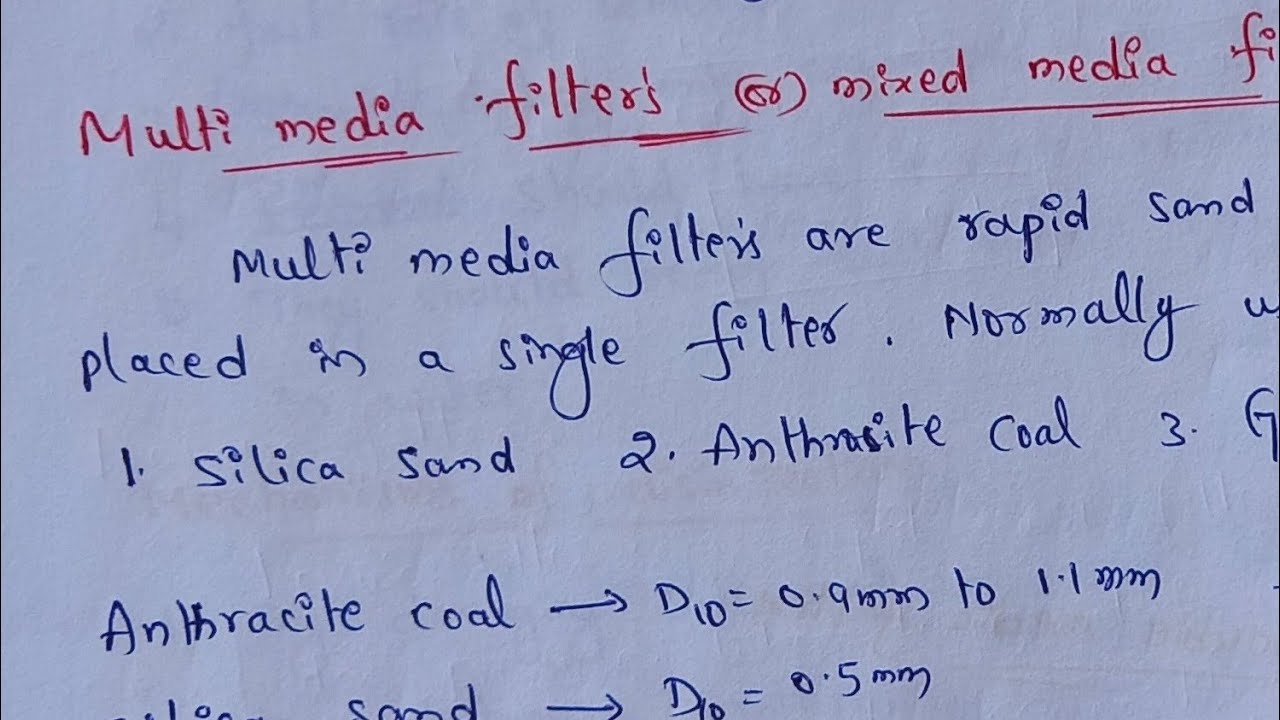 Multi media filter's (or) mixed media fi
Multi media filter's are rapid sand
placed in a single filter. Normally u
1. Silica sand 2. Anthrasite coal 3. G
Anthracite coal → D10 = 0.9mm to 1.1mm
silica sand → D10 = 0.5mm